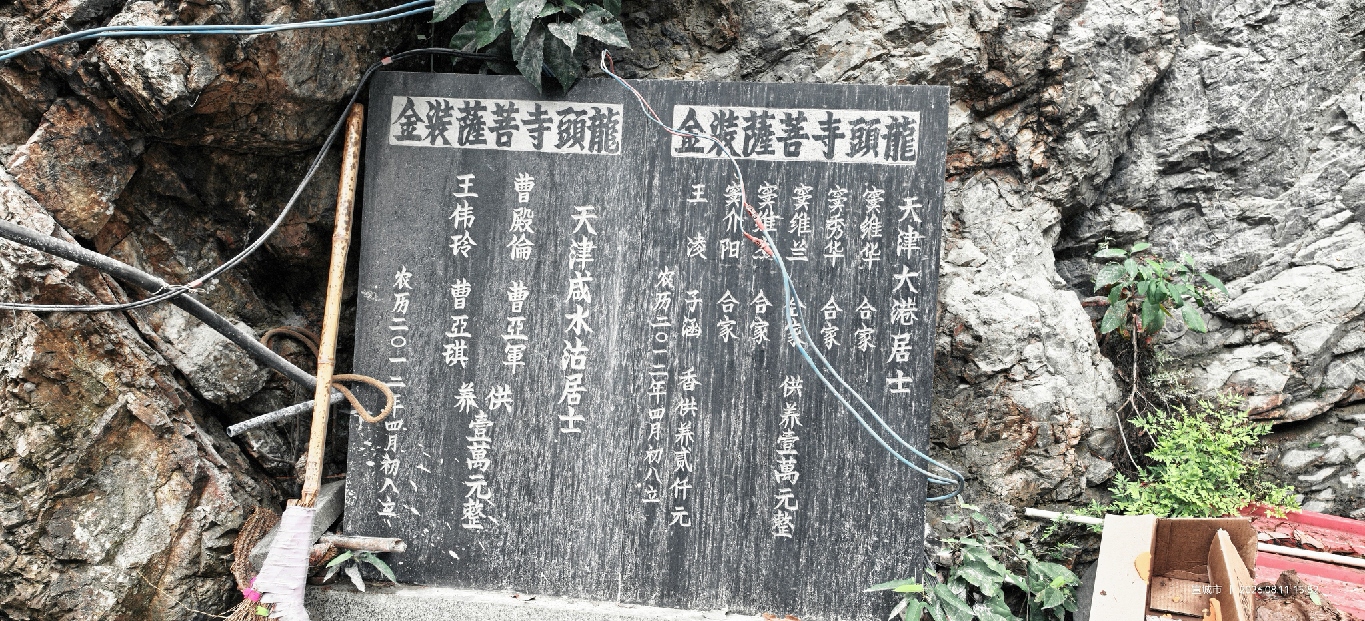 龍頭寺菩薩裝金
天津大港居士
窦维华 合家
窦秀华 合家
窦维兰 合家
窦维兰 合家
窦介阳 合家
供养壹萬元整
王凌 子涵 香供养贰仟元
农历二〇一二年四月初八立
龍頭寺菩薩裝金
天津咸水沽居士
曹殿倫 曹亞軍
王伟玲 曹亞琪
供养
壹萬元整
农历二〇一二年四月初八立